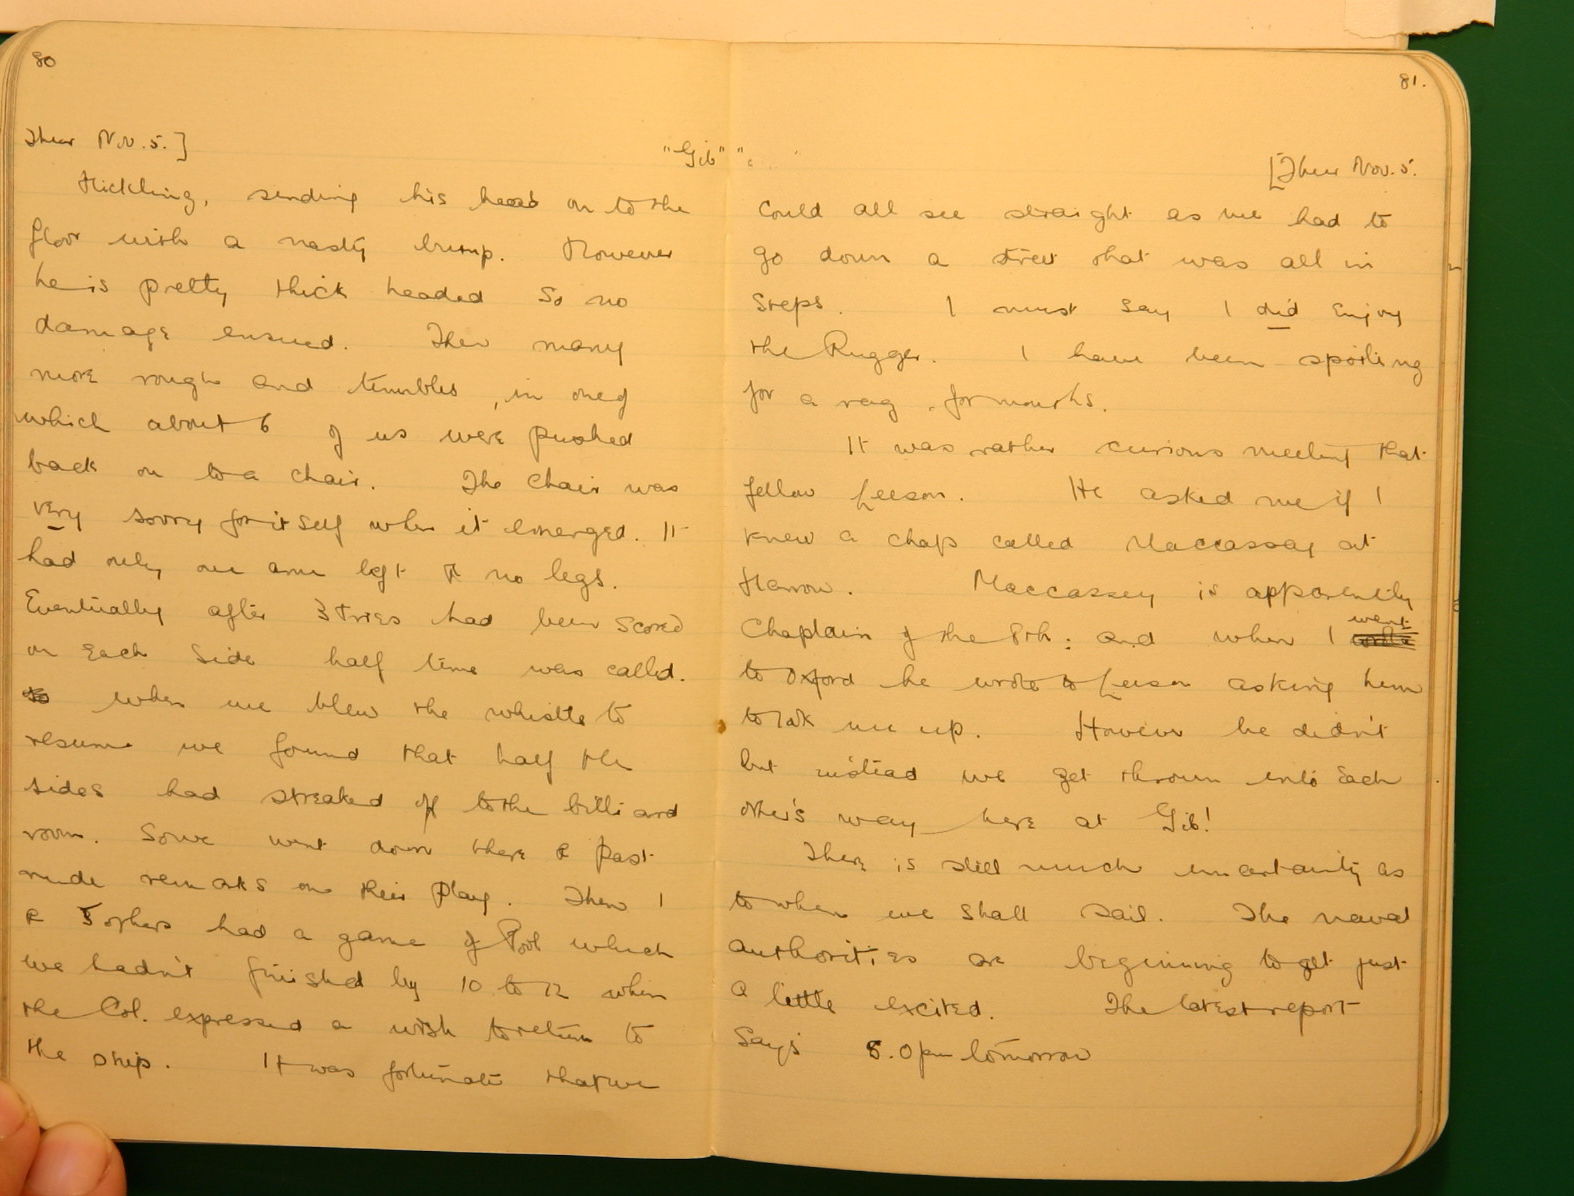 80
Thur Nov. 5.]
"Gib"
Hickling, sending his head on to the
floor with a nasty bump. However
he is pretty thick headed so no
damage ensued. Then many
more roughs and tumbles, in one of
which about 6 of us were pushed
back on to a chair. The chair was
very sorry for itself when it emerged. It
had only one arm left & no legs.
Eventually after 3 tries had been scored
on each side half time was called.
when we blew the whistle to
resume we found that half the
sides had streaked off to the billiard
room. So we went down there & past
rude remarks on their play. Then I
& 5 others had a game of Pool which
we hadn't finished by 10 to 12 when
the Col. expressed a wish to return to
the ship. It was fortunate that we
81.
[Thur Nov. 5.
could all see straight as we had to
go down a street that was all in
steps. I must say I did enjoy
the Rugger. I have been spoiling
for a rag for months.
It was rather curious meeting that
fellow Leeson. He asked me if I
knew a chap called Maccassey at
Harrow. Maccassey is apparently
Chaplain of the 8th: and when I went
to Oxford he wrote to Leeson asking him
to look me up. However he didn't
but instead we get thrown into each
other's way here at Gib!
There is still much uncertainty as
to when we shall sail. The naval
authorities are beginning to get just
a little excited. The latest report
says 5.0 pm tomorrow